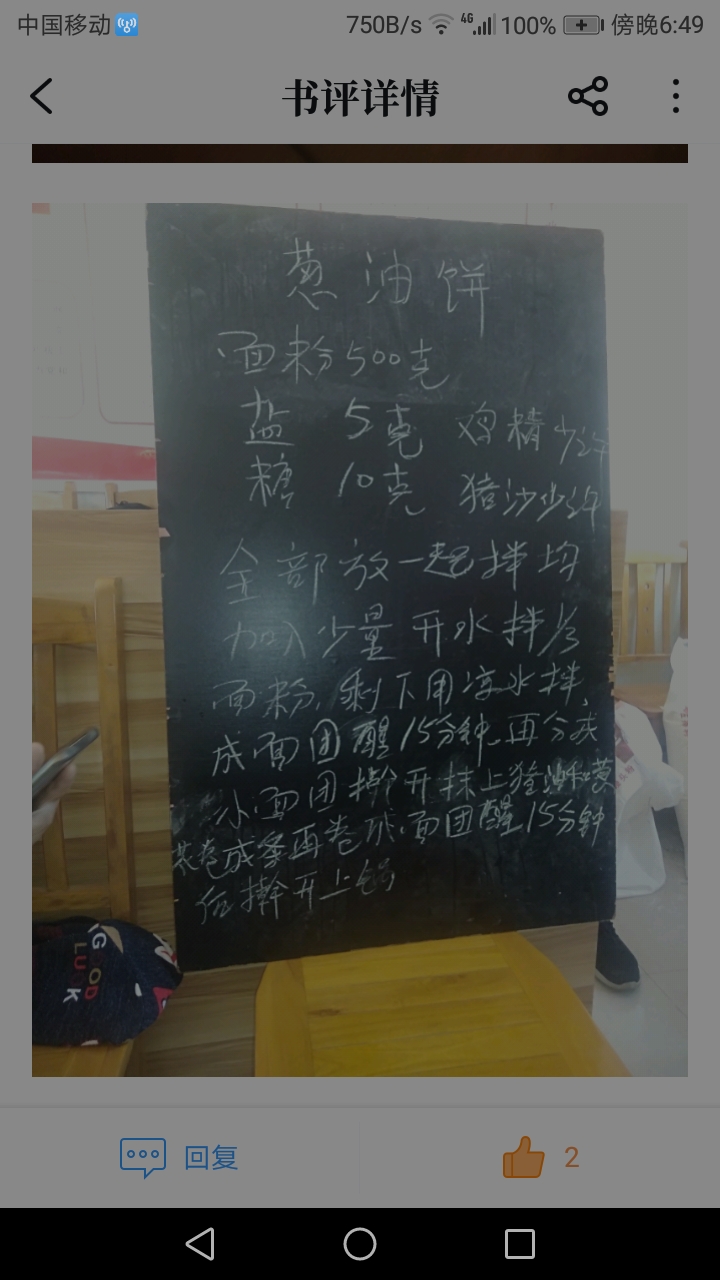 中国移动 750B/s 4G 100% 傍晚6:49
书评详情
葱油饼
面粉500克
盐 5克 鸡精少许
糖 10克 猪油少许
全部放一起拌均
加入少量开水拌
面粉,剩下用凉水拌,
成面团醒15分钟.再分成
小面团擀开抹上猪油和葱
花卷成条再卷成面团醒15分钟
后擀开上锅
GOOD
LUCK
回复 2